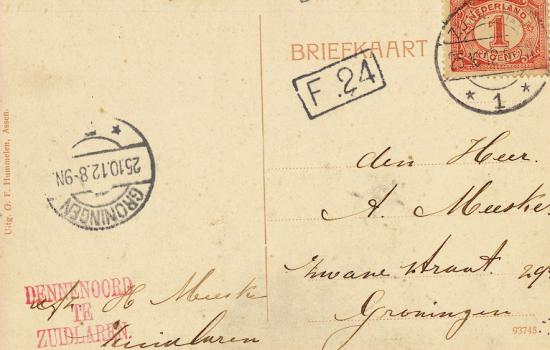 BRIEFKAART
NEDERLAND
1
F.24
* 1 *
GRONINGEN
25.10.12.8-9N.
Uitg. G. F. Hummelen, Assen.
den Heer.
A. Meeske
Zwane straat 29
Groningen
DENNENOORD
TE
ZUIDLAREN.
afz H Meeske
Zuidlaren
93748